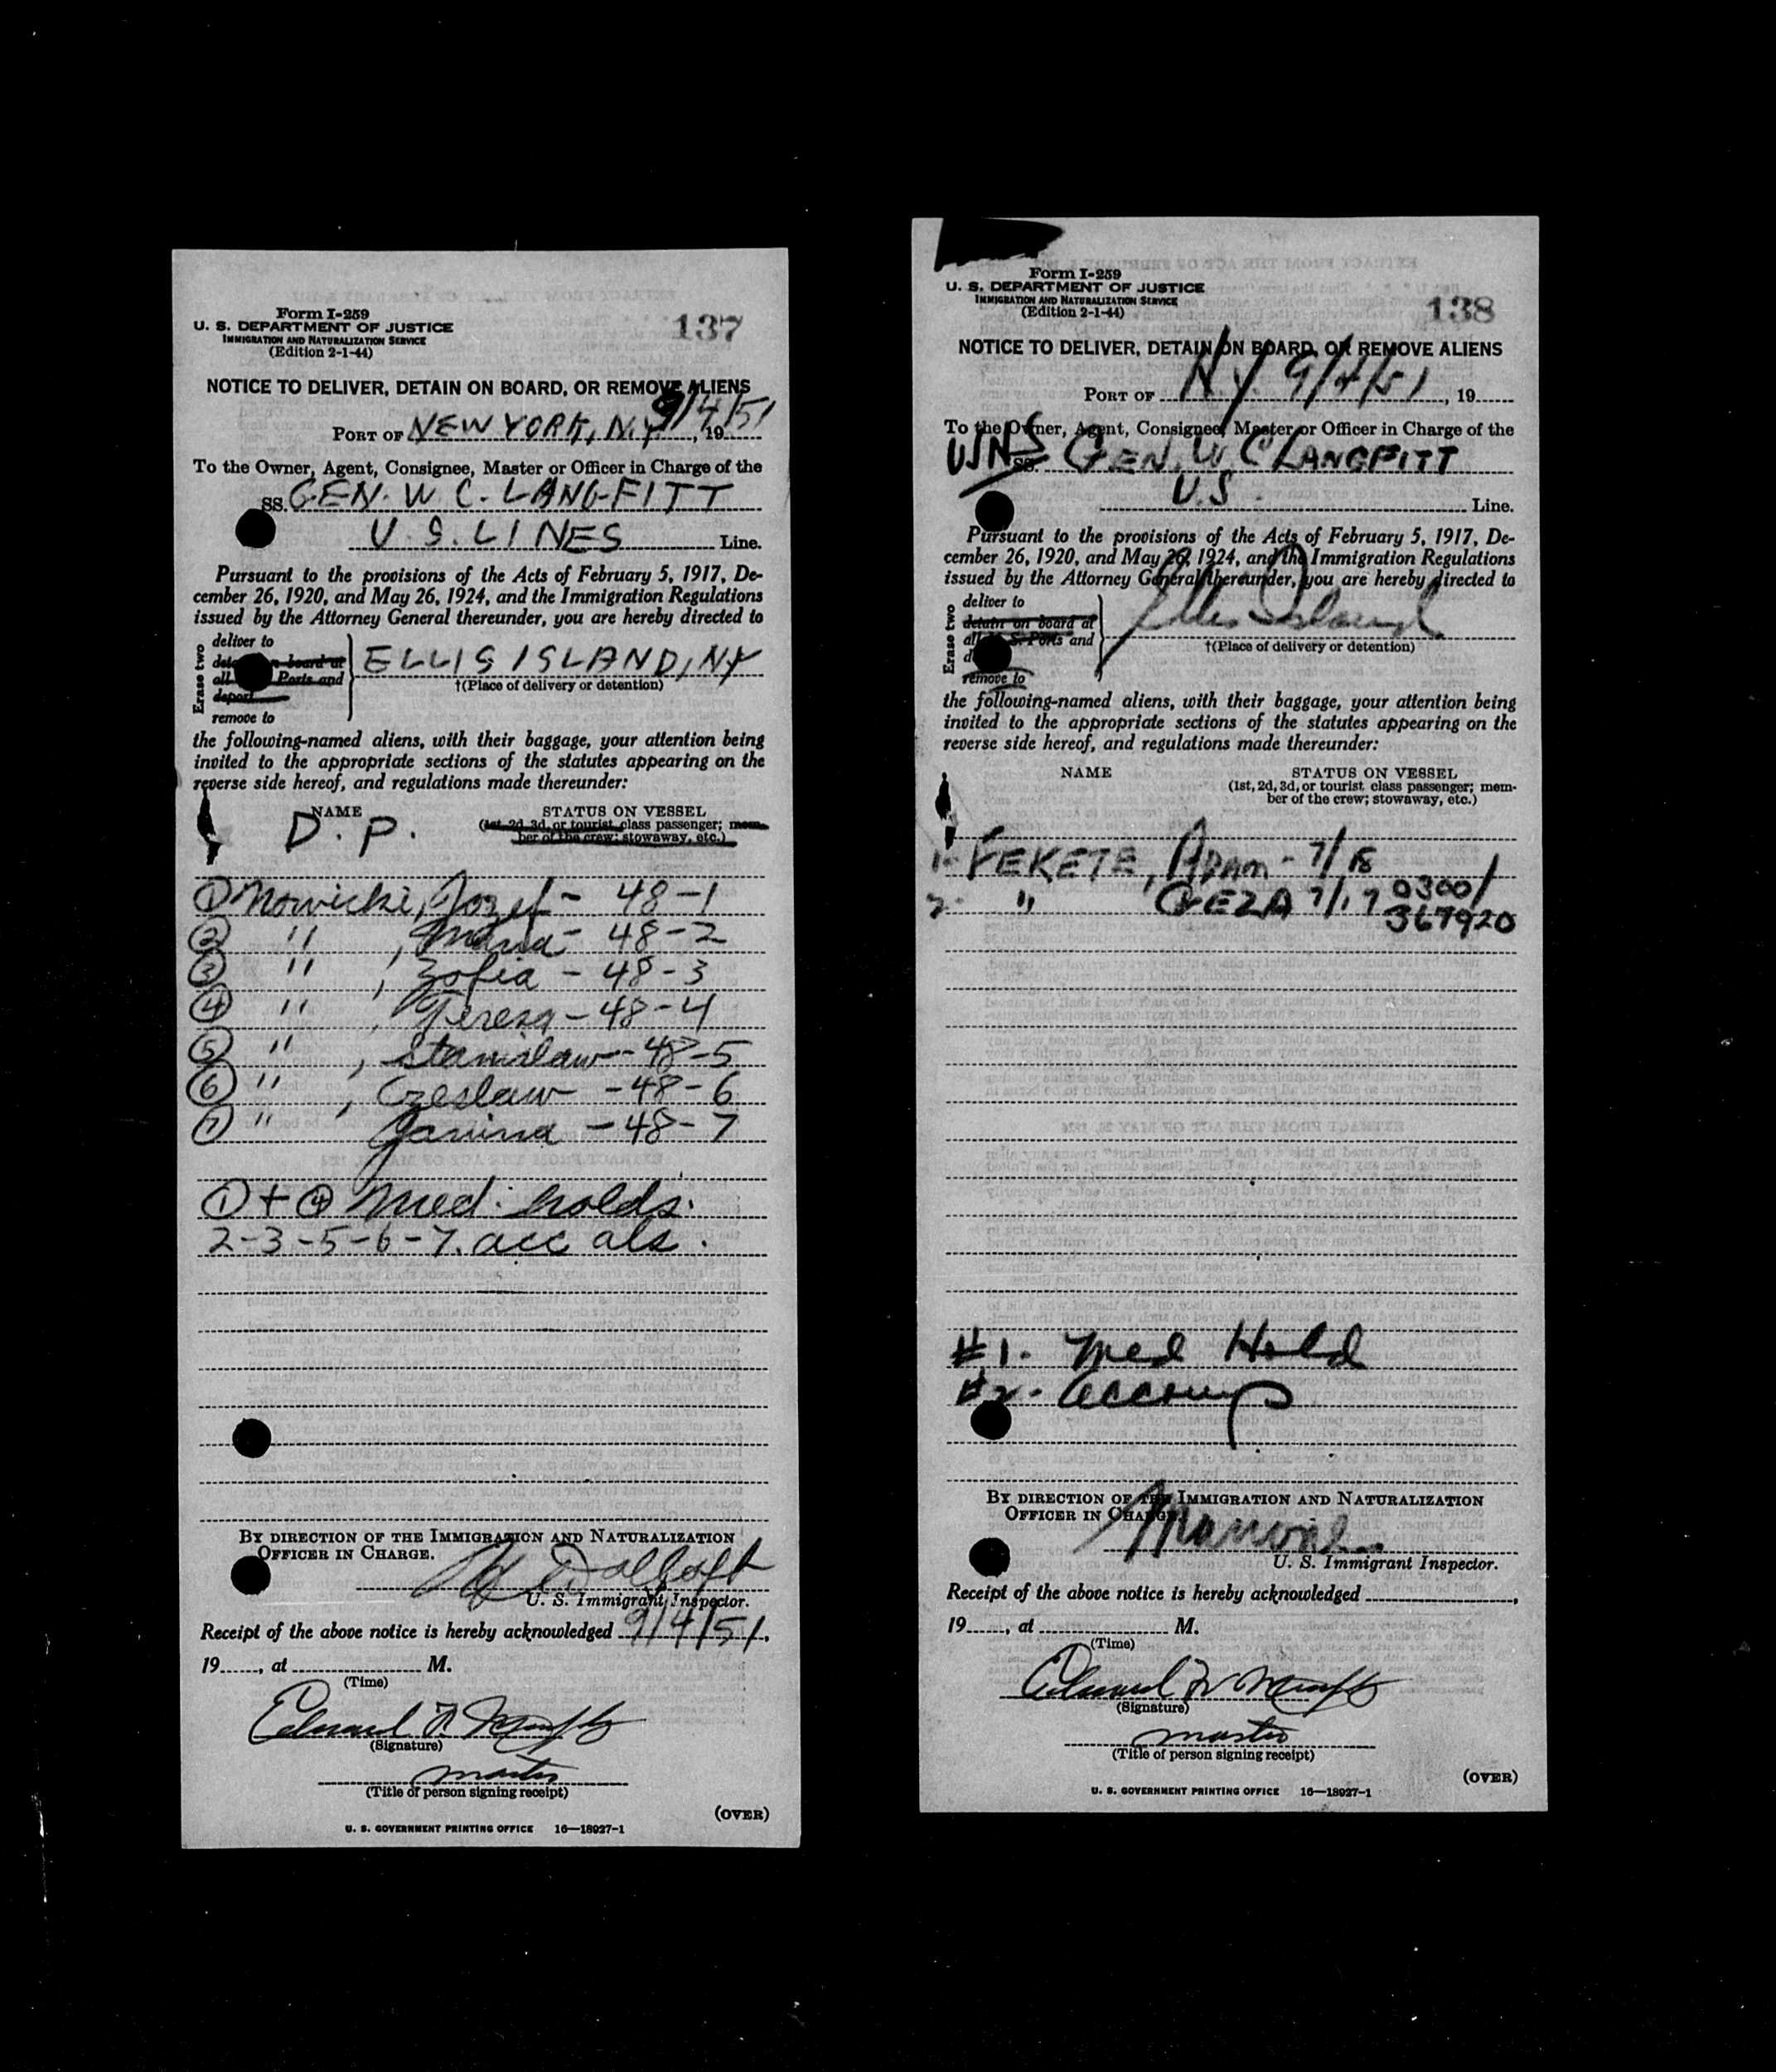 Form I-259
U. S. DEPARTMENT OF JUSTICE
IMMIGRATION AND NATURALIZATION SERVICE
(Edition 2-1-44)
137
NOTICE TO DELIVER, DETAIN ON BOARD, OR REMOVE ALIENS
PORT OF NEW YORK, N.Y. 9/4/51, 19
To the Owner, Agent, Consignee, Master or Officer in Charge of the
SS. GEN. W. C. LANGFITT
U.S. LINES Line.
Pursuant to the provisions of the Acts of February 5, 1917, De-
cember 26, 1920, and May 26, 1924, and the Immigration Regulations
issued by the Attorney General thereunder, you are hereby directed to
Erase two
deliver to
on board at
all Ports and
deport
remove to
ELLIS ISLAND, NY
†(Place of delivery or detention)
the following-named aliens, with their baggage, your attention being
invited to the appropriate sections of the statutes appearing on the
reverse side hereof, and regulations made thereunder:
NAME
D. P.
STATUS ON VESSEL
(1st, 2d, 3d, or tourist class passenger; mem-
ber of the crew; stowaway, etc.)
① Nowicki, Jozef - 48-1
② " , Maria - 48-2
③ " , Zofia - 48-3
④ " , Teresa - 48-4
⑤ " , Stanislaw - 48-5
⑥ " , Czeslaw - 48-6
⑦ " Janina - 48-7
① + ④ Med. holds.
2-3-5-6-7. acc als.
BY DIRECTION OF THE IMMIGRATION AND NATURALIZATION
OFFICER IN CHARGE.
U. S. Immigrant Inspector.
Receipt of the above notice is hereby acknowledged 9/4/51,
19, at M.
(Time)
Edward
(Signature)
master
(Title of person signing receipt)
(OVER)
U. S. GOVERNMENT PRINTING OFFICE 16—18927-1
Form I-259
U. S. DEPARTMENT OF JUSTICE
IMMIGRATION AND NATURALIZATION SERVICE
(Edition 2-1-44)
138
NOTICE TO DELIVER, DETAIN ON BOARD, OR REMOVE ALIENS
PORT OF N.Y. 9/4/51, 19
To the Owner, Agent, Consignee, Master or Officer in Charge of the
USNS SS. GEN. W C LANGFITT
U.S. Line.
Pursuant to the provisions of the Acts of February 5, 1917, De-
cember 26, 1920, and May 26, 1924, and the Immigration Regulations
issued by the Attorney General thereunder, you are hereby directed to
Erase two
deliver to
detain on board at
all U. S. Ports and
remove to
Ellis Island
†(Place of delivery or detention)
the following-named aliens, with their baggage, your attention being
invited to the appropriate sections of the statutes appearing on the
reverse side hereof, and regulations made thereunder:
NAME
STATUS ON VESSEL
(1st, 2d, 3d, or tourist class passenger; mem-
ber of the crew; stowaway, etc.)
1- FEKETE, ADAM - 7/18
2- " GEZA 7/17 0300/
367920
#1. Med Hold
#2- Accomp
BY DIRECTION OF THE IMMIGRATION AND NATURALIZATION
OFFICER IN CHARGE.
U. S. Immigrant Inspector.
Receipt of the above notice is hereby acknowledged,
19, at M.
(Time)
Edward
(Signature)
master
(Title of person signing receipt)
(OVER)
U. S. GOVERNMENT PRINTING OFFICE 16—18927-1